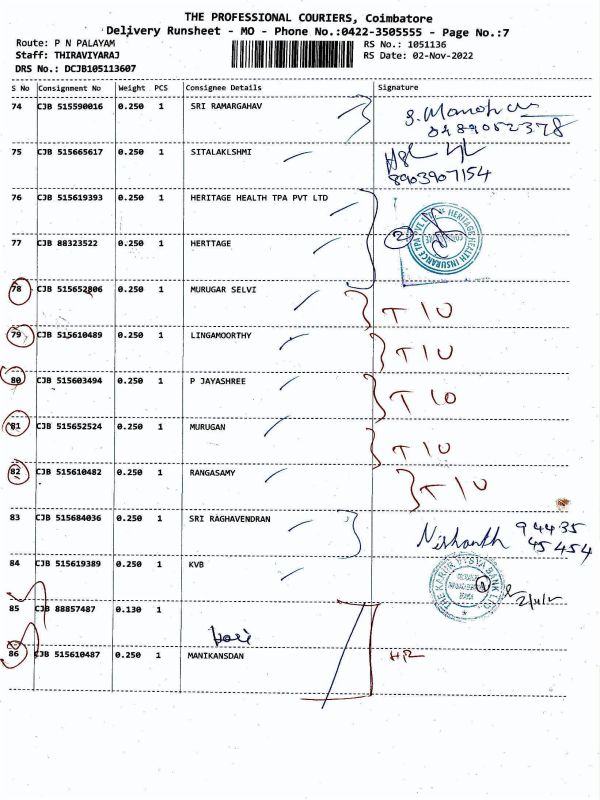 THE PROFESSIONAL COURIERS, Coimbatore
Delivery Runsheet - MO - Phone No.:0422-3505555 - Page No.:7
Route: P N PALAYAM
RS No.: 1051136
Staff: THIRAVIYARAJ
RS Date: 02-Nov-2022
DRS No.: DCJB105113607
S No Consignment No Weight PCS Consignee Details Signature
74 CJB 515590016 0.250 1 SRI RAMARGAHAV
75 CJB 515665617 0.250 1 SITALAKLSHMI
8903907154
76 CJB 515619393 0.250 1 HERITAGE HEALTH TPA PVT LTD
77 CJB 88323522 0.250 1 HERTTAGE 2
78 CJB 515652806 0.250 1 MURUGAR SELVI T I U
79 CJB 515610489 0.250 1 LINGAMOORTHY T I U
80 CJB 515603494 0.250 1 P JAYASHREE T I O
81 CJB 515652524 0.250 1 MURUGAN T I U
82 CJB 515610482 0.250 1 RANGASAMY T I U
83 CJB 515684036 0.250 1 SRI RAGHAVENDRAN Nishanth 94435
45454
84 CJB 515619389 0.250 1 KVB
THE KARUR VYSYA BANK LTD
85 CJB 88857487 0.130 1
86 CJB 515610487 0.250 1 MANIKANSDAN